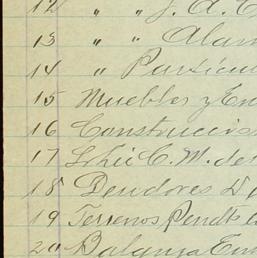 12 " " J. A. C
13 " " Alam
14 " Particu
15 Muebles y En
16 Construccio
17 C. M. de
18 Deudores D
19 Terrenos Pendte
20 Balanza Em